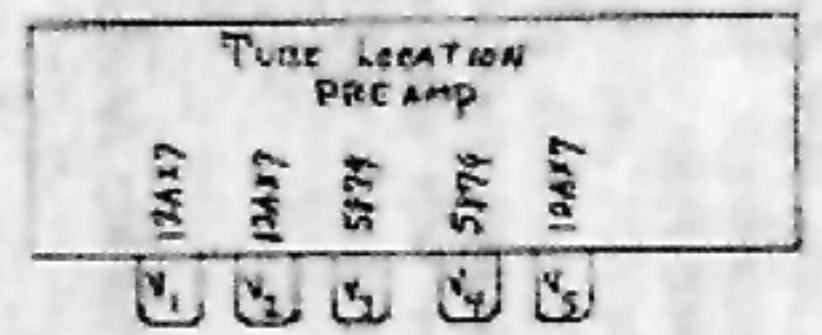 TUBE LOCATION
PREAMP
12AX7 12AX7 5879 5879 12AX7
V1 V2 V3 V4 V5